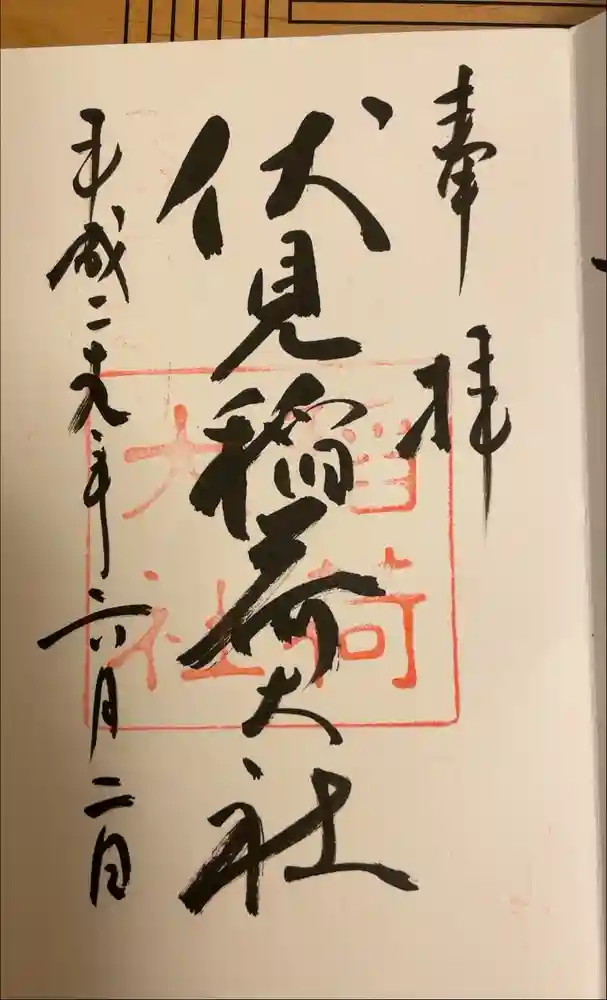 奉拝
伏見稲荷大社
平成二十九年六月二日
稲荷
大社